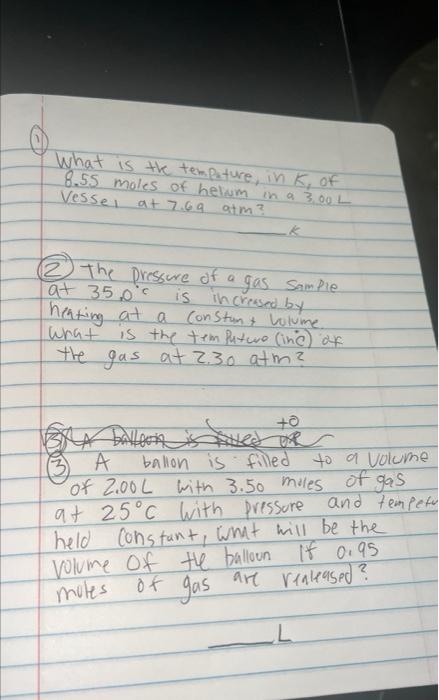 ①
What is the tempature, in K, of
8.55 moles of helium in a 3.00 L
Vessel at 7.69 atm?
____K
② The pressure of a gas sample
at 35.0°C is increased by
heating at a constant volume.
What is the tempature (in°C) of
the gas at 2.30 atm?
to
③ A balloon is filled of
③ A ballon is filled to a volume
of 2.00L with 3.50 moles of gas
at 25°C with pressure and tempetu
held constant, what will be the
volume of the balloon if 0.95
moles of gas are realeased?
____L